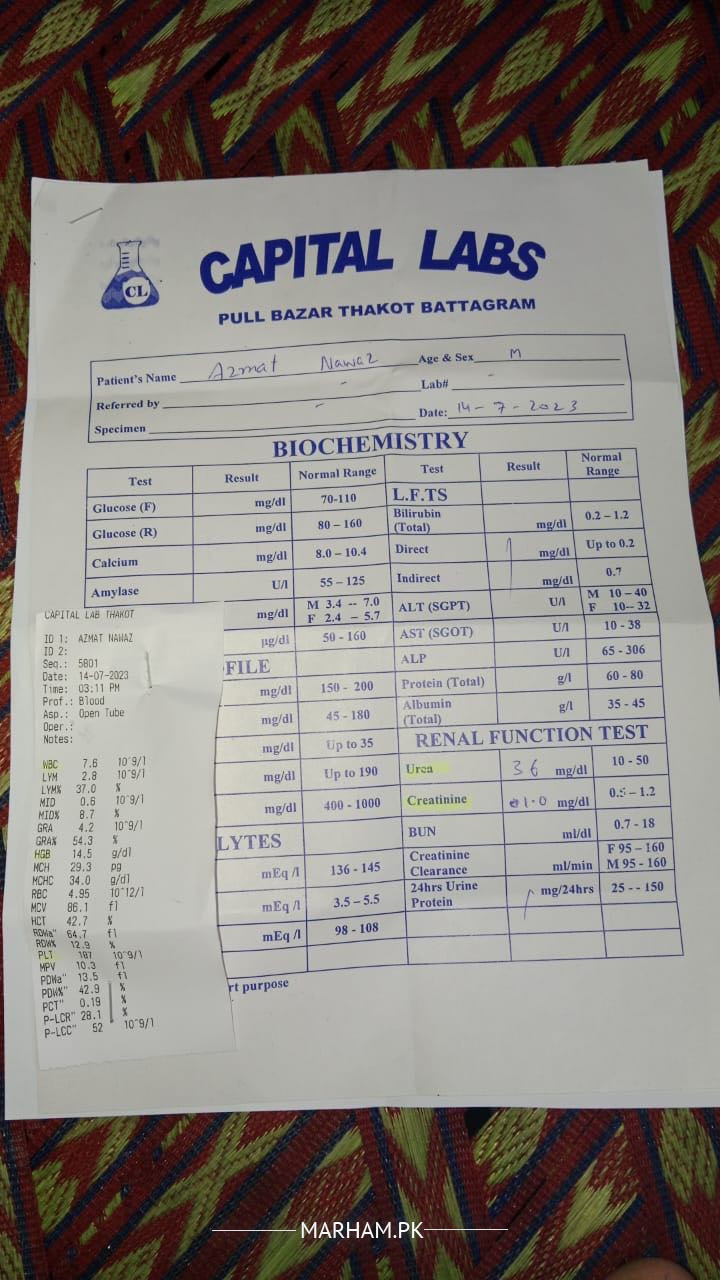 CL
CAPITAL LABS
PULL BAZAR THAKOT BATTAGRAM
Patient's Name Azmat Nawaz Age & Sex M
Referred by - Lab# -
Specimen - Date: 14-7-2023
BIOCHEMISTRY
Test Result Normal Range Test Result Normal Range
Glucose (F) mg/dl 70-110 L.F.TS
Glucose (R) mg/dl 80 – 160 Bilirubin (Total) mg/dl 0.2 – 1.2
Calcium mg/dl 8.0 – 10.4 Direct mg/dl Up to 0.2
Amylase U/l 55 – 125 Indirect mg/dl 0.7
mg/dl M 3.4 -- 7.0 F 2.4 – 5.7 ALT (SGPT) U/l M 10 – 40 F 10-- 32
µg/dl 50 - 160 AST (SGOT) U/l 10 - 38
FILE ALP U/l 65 - 306
mg/dl 150 - 200 Protein (Total) g/l 60 - 80
mg/dl 45 - 180 Albumin (Total) g/l 35 - 45
mg/dl Up to 35 RENAL FUNCTION TEST
mg/dl Up to 190 Urea 36 mg/dl 10 - 50
mg/dl 400 - 1000 Creatinine 1.0 mg/dl 0.5 – 1.2
LYTES BUN ml/dl 0.7 - 18
mEq /l 136 - 145 Creatinine Clearance ml/min F 95 – 160 M 95 - 160
mEq /l 3.5 – 5.5 24hrs Urine Protein mg/24hrs 25 - - 150
mEq /l 98 - 108
rt purpose
CAPITAL LAB THAKOT
ID 1: AZMAT NAWAZ
ID 2:
Seq.: 5801
Date: 14-07-2023
Time: 03:11 PM
Prof.: Blood
Asp.: Open Tube
Oper.:
Notes:
WBC 7.6 10^9/l
LYM 2.8 10^9/l
LYM% 37.0 %
MID 0.6 10^9/l
MID% 8.7 %
GRA 4.2 10^9/l
GRA% 54.3 %
HGB 14.5 g/dl
MCH 29.3 pg
MCHC 34.0 g/dl
RBC 4.95 10^12/l
MCV 86.1 fl
HCT 42.7 %
RDWa" 64.7 fl
RDW% 12.9 %
PLT 187 10^9/l
MPV 10.3 fl
PDWa" 13.5 fl
PDW%" 42.9 %
PCT" 0.19 %
P-LCR" 28.1 %
P-LCC" 52 10^9/l
MARHAM.PK